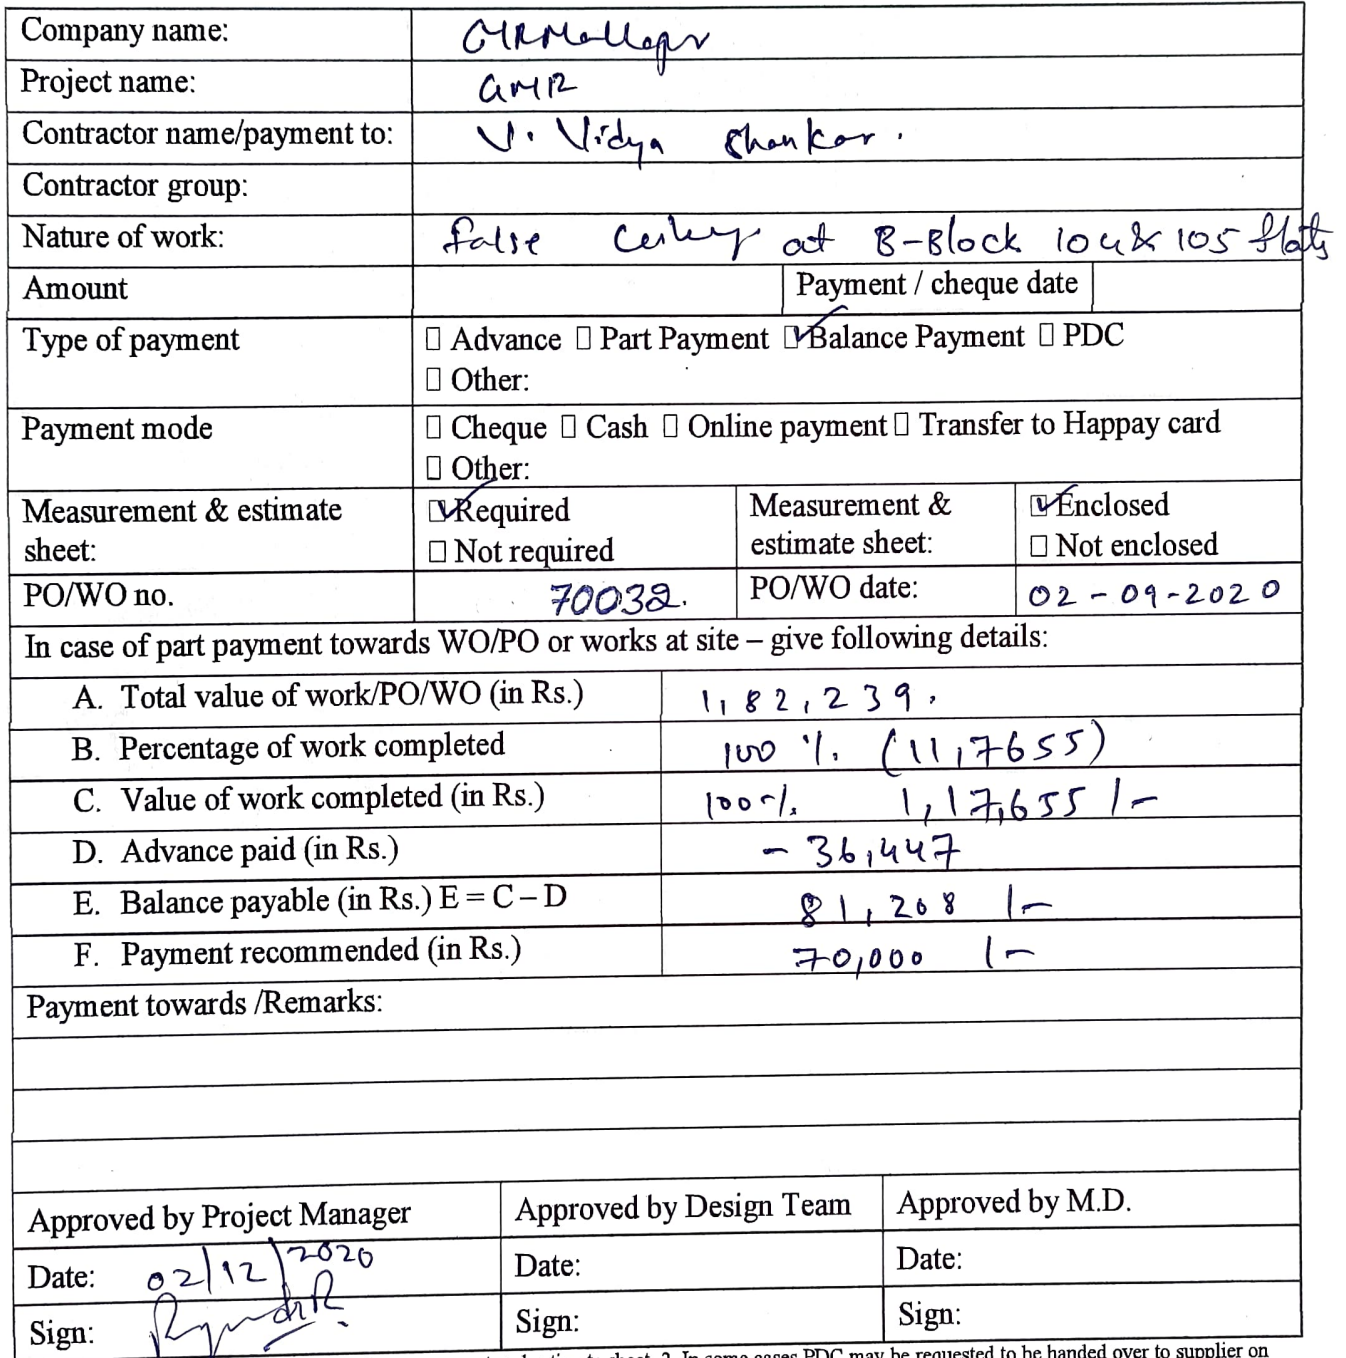 Company name:
Project name: GMR
Contractor name/payment to: V. Vidya Shankar.
Contractor group:
Nature of work: false at B-Block 104 & 105 flats
Amount Payment / cheque date
Type of payment ☐ Advance ☐ Part Payment ☑ Balance Payment ☐ PDC
☐ Other:
Payment mode ☐ Cheque ☐ Cash ☐ Online payment ☐ Transfer to Happay card
☐ Other:
Measurement & estimate ☑ Required Measurement & ☑ Enclosed
sheet: ☐ Not required estimate sheet: ☐ Not enclosed
PO/WO no. 70032. PO/WO date: 02-09-2020
In case of part payment towards WO/PO or works at site – give following details:
A. Total value of work/PO/WO (in Rs.) 1,82,239.
B. Percentage of work completed 100 %. (11,7655)
C. Value of work completed (in Rs.) 100%. 1,17,655/-
D. Advance paid (in Rs.) - 36,447
E. Balance payable (in Rs.) E = C – D 81,208 /-
F. Payment recommended (in Rs.) 70,000 /-
Payment towards /Remarks:
Approved by Project Manager Approved by Design Team Approved by M.D.
Date: 02/12/2020 Date: Date:
Sign: Sign: Sign:
2. In some cases PDC may be requested to be handed over to supplier on